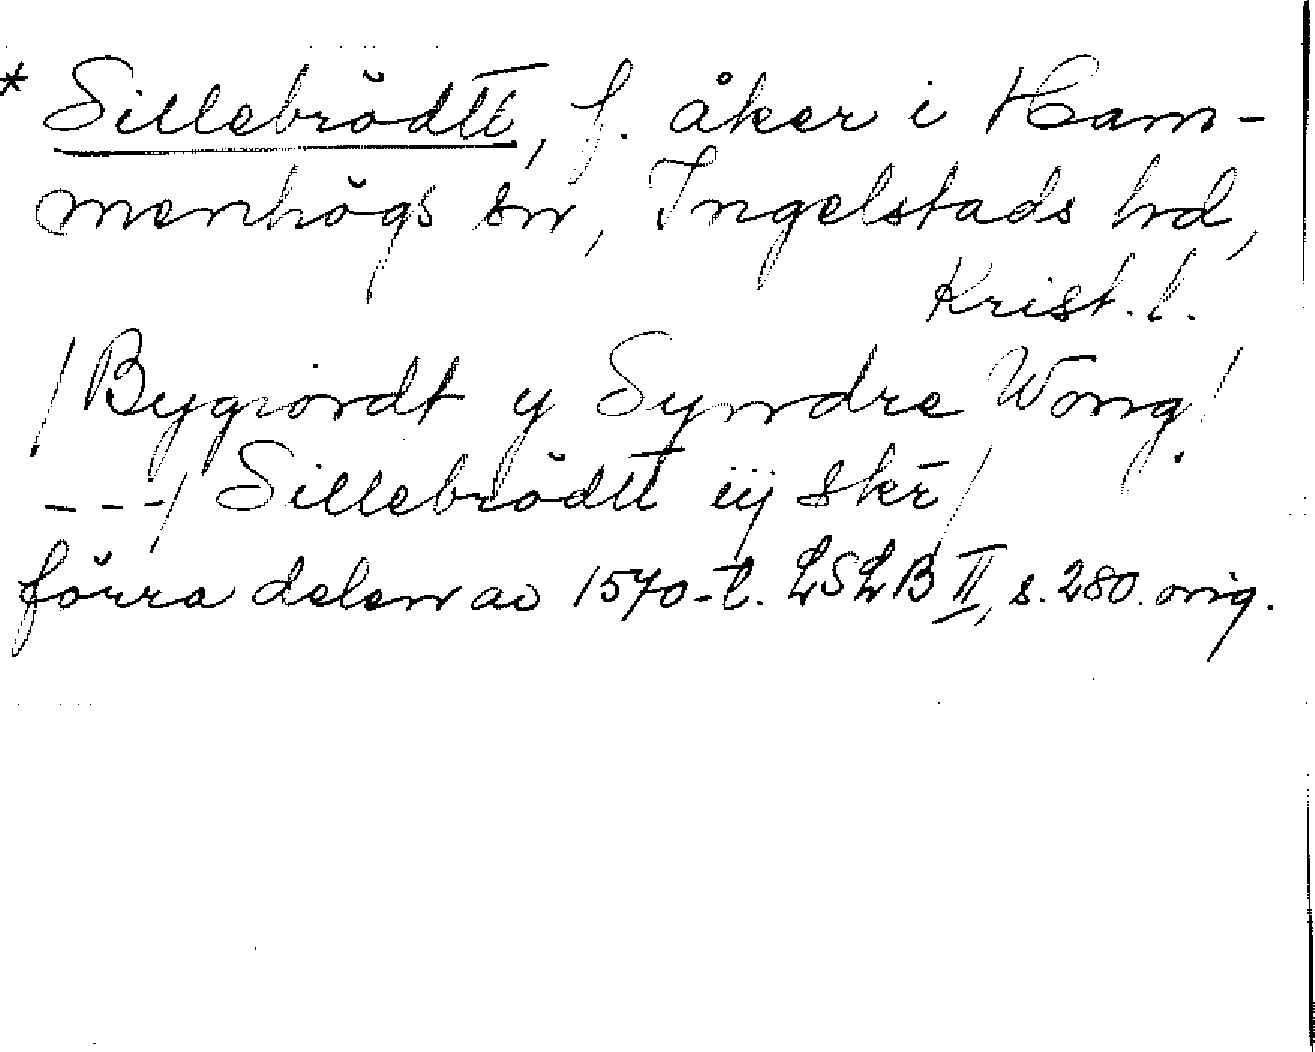 * Sillebrödtt, f. åker i Ham-
menhögs sn, Ingelstads hd,
Krist. l.
/Bygiordt y Syndre Wong!
---/ Sillebrödtt iij skr/
förra delen av 1570-t. LSLB II, s. 280. orig.